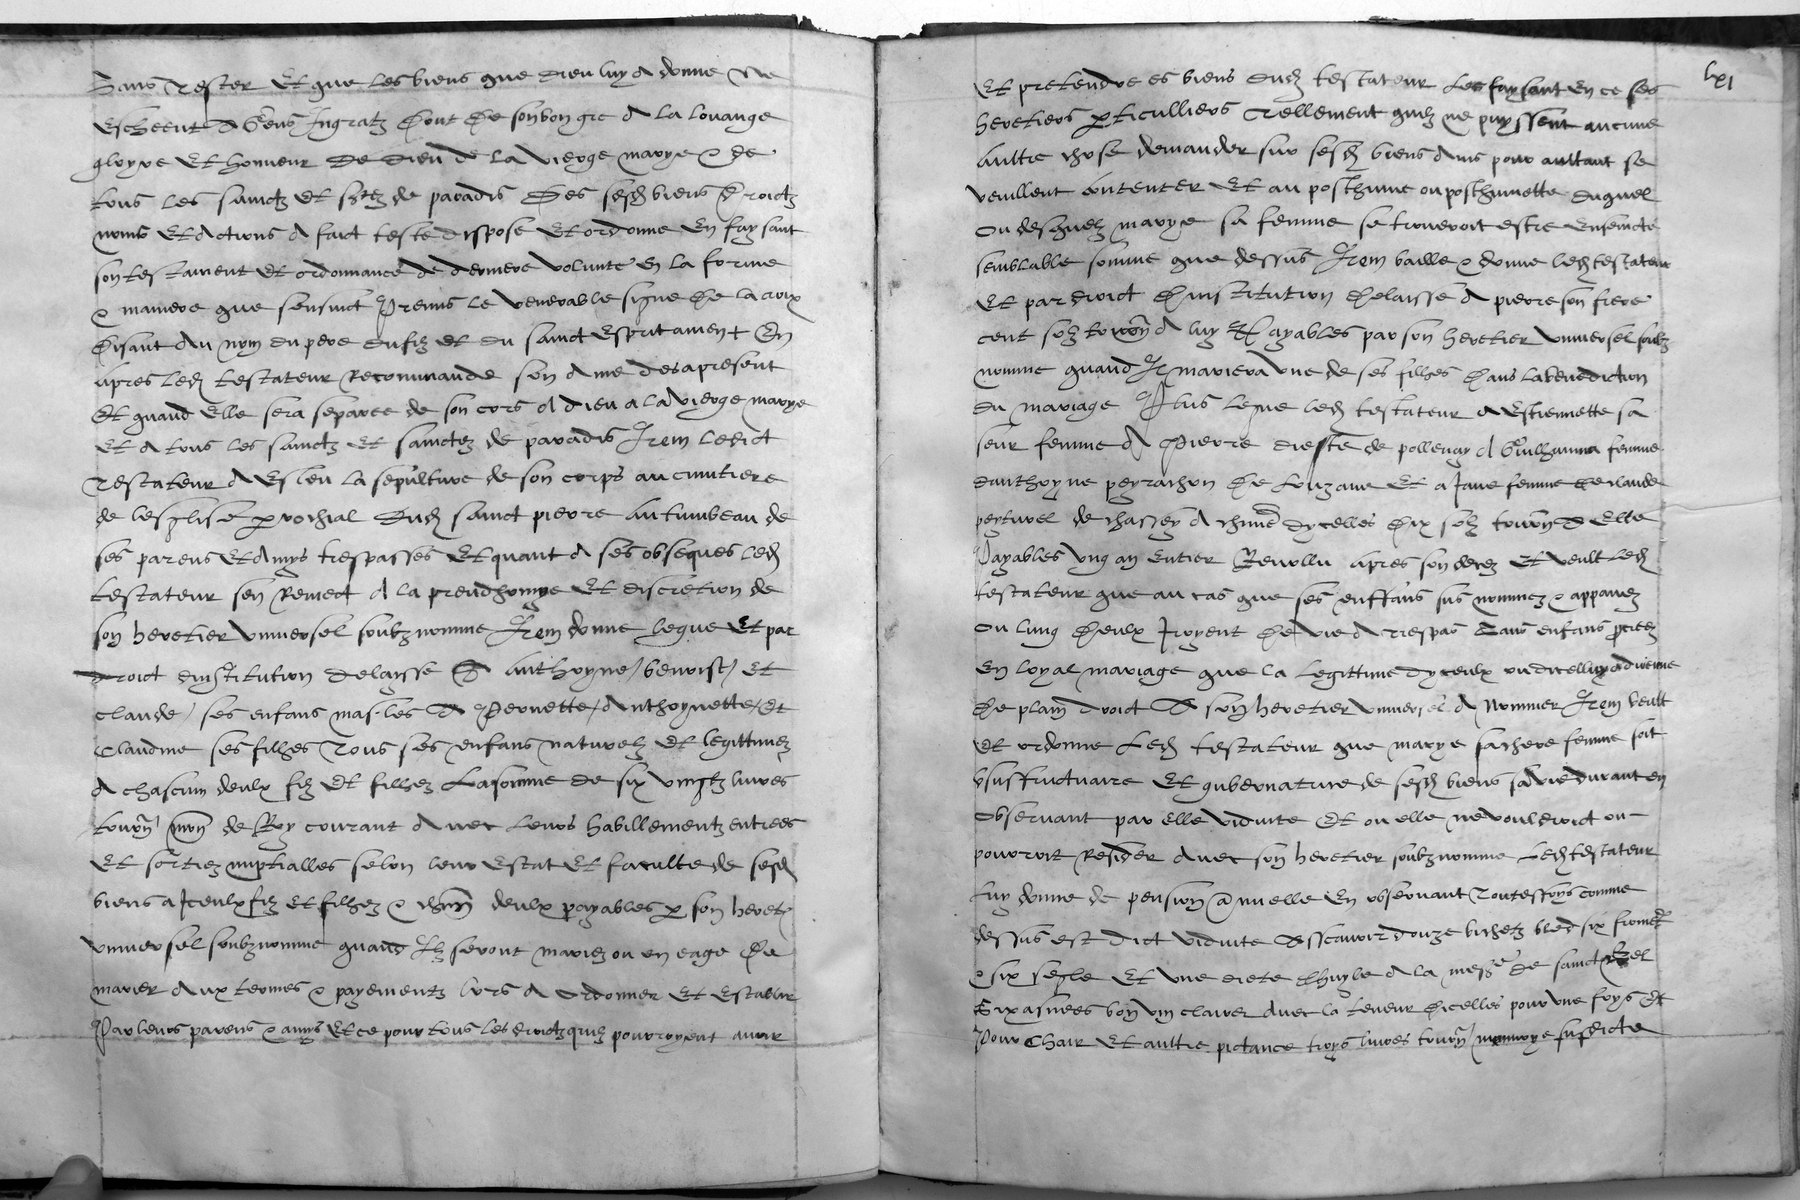 Sans tester Et que les biens que dieu luy a donne ne
Escheent a gens Ingratz Dont De son bon gre A la louange
gloyre Et honneur De Dieu de la vierge marye & de
tous les sainctz Et sctez de paradis Des sesd biens Droictz
noms Et Actions A faict teste dispose Et ordonne En faysant
son testament Et ordonnance de derniere volunte En la forme
& maniere que sensuict Premis le venerable signe De la croix
Disant Au nom du pere du filz Et du sainct Esprit amen + En
Apres led testateur Recommande son Ame des apresent
Et quand Elle sera separee de son cors A dieu a la vierge marye
Et A tous les sainctz Et sainctez de paradis Item ledict
Testateur A Esleu la sepulture de son corps au cimitiere
de lesglise prochial Dud sainct pierre Au tumbeau de
ses parens Et Amys trespasses Et quant A ses obseques led
testateur sen Remect A la preudhomye Et discretion de
son heretier vniuersel soubz nomme Item donne legue Et par
droict dinstitution Delaysse A Anthoyne / benoist / Et
claude / ses enfans masles A Pernette / Anthoynette / Et
Claudine ses filhes Tous ses enfans naturelz Et legittimez
A chascun deulx filz Et filhez La somme de six vingtz liures
tourn mon de Roy courant Auec Leurs habillementz entrees
Et sortiez nuptialles selon leur Estat Et faculte de sesd
biens a Iceulx filz Et filhez & chun deulx payables p son heret
vniuersel soubznomme quand Ilz seront mariez ou en eage De
marier Aux termes & payementz lors A ordonner Et Establir
Par leurs parens & amys Et ce pour tous les droictz quilz pourroyent auoir
lxi
Et pretendre es biens Dud testateur Les faysant En ce ses
heretiers pticulliers Tellement quilz ne puyssent aucune
Aultre chose demander sur sesd biens Ains pour aultant se
veuillent Contenter Et au posthume ou posthumette duquel
Ou desquelz marye sa femme se trouueroit estre Enseincte
semblable somme que dessus Item baille & donne led testateur
Et par droict Dinstitution Delaisse A pierre son frere
cent solz tourn A luy payables par son heretier vniuersel soubz
nomme quand Il mariera vne de ses filhes Dans la benediction
du mariage Plus legue led testateur A Estiennette sa
seur femme A Pierre de pollenay A Guilhauma femme
danthoyne peyrachon De Louzane Et a Jane femme De claude
de chassey A chune dycelles Dix solz tourn A Elle
Payables vng an Entier Reuollu apres son deces Et veult led
testateur que au cas que ses enffans sus nommez &
Ou lung Deulx Iroyent De vie A Trespas Sans enfans preez
En loyal mariage que la legittime dyceulx ou dicelluy aduienne
De plain droict A son heretier vniuersel A Nommer Item veult
Et ordonne Led testateur que marye sa chere femme soit
vsuffructuaire Et gubernatrice de sesd biens sa vie durant en
Obseruant par elle viduite Et ou elle ne vouldroict ou
pourroit Resider Auec son heretier soubznomme Led testateur
Luy donne de pension annuelle En obseruant Toutesfoys comme
dessus est dict viduite Asscauoir douze bichetz bled six froment
& six segle Et vne Dhuyle A la mesure de sainct
Six asnees bon vin clairet Auec la teneur Dicelles pour vne foys Et
Pour Chair Et aultre pictance troys liures tourn monnoye susdicte